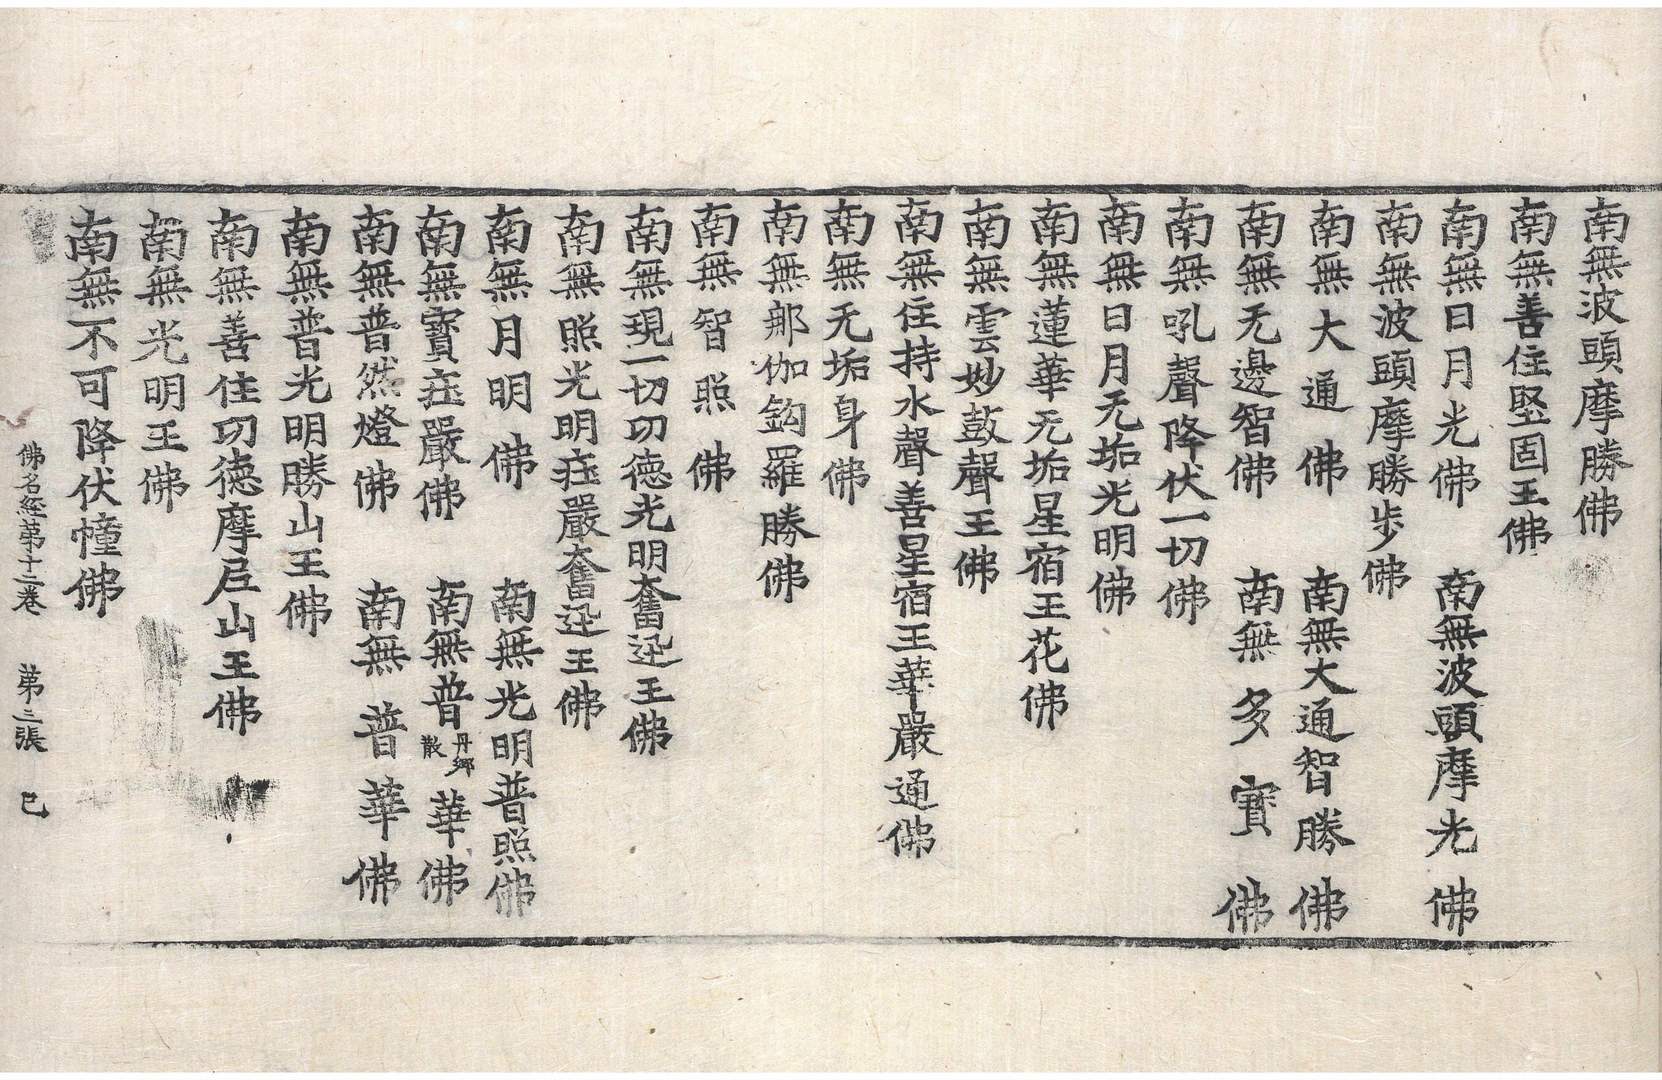 南無波頭摩勝佛
南無善住堅固王佛
南無日月光佛　南無波頭摩光佛
南無波頭摩勝步佛
南無大通佛　南無大通智勝佛
南無无邊智佛　南無多寶佛
南無吼聲降伏一切佛
南無日月无垢光明佛
南無蓮華无垢星宿王花佛
南無雲妙鼓聲王佛
南無住持水聲善星宿王華嚴通佛
南無无垢身佛
南無那伽鈎羅勝佛
南無智照佛
南無現一切功德光明奮迅王佛
南無照光明莊嚴奮迅王佛
南無月明佛　南無光明普照佛
南無寶莊嚴佛　南無普丹鄉散華佛
南無普然燈佛　南無普華佛
南無普光明勝山王佛
南無善住功德摩尼山王佛
南無光明王佛
南無不可降伏幢佛
佛名經第十二卷　第三張　巳